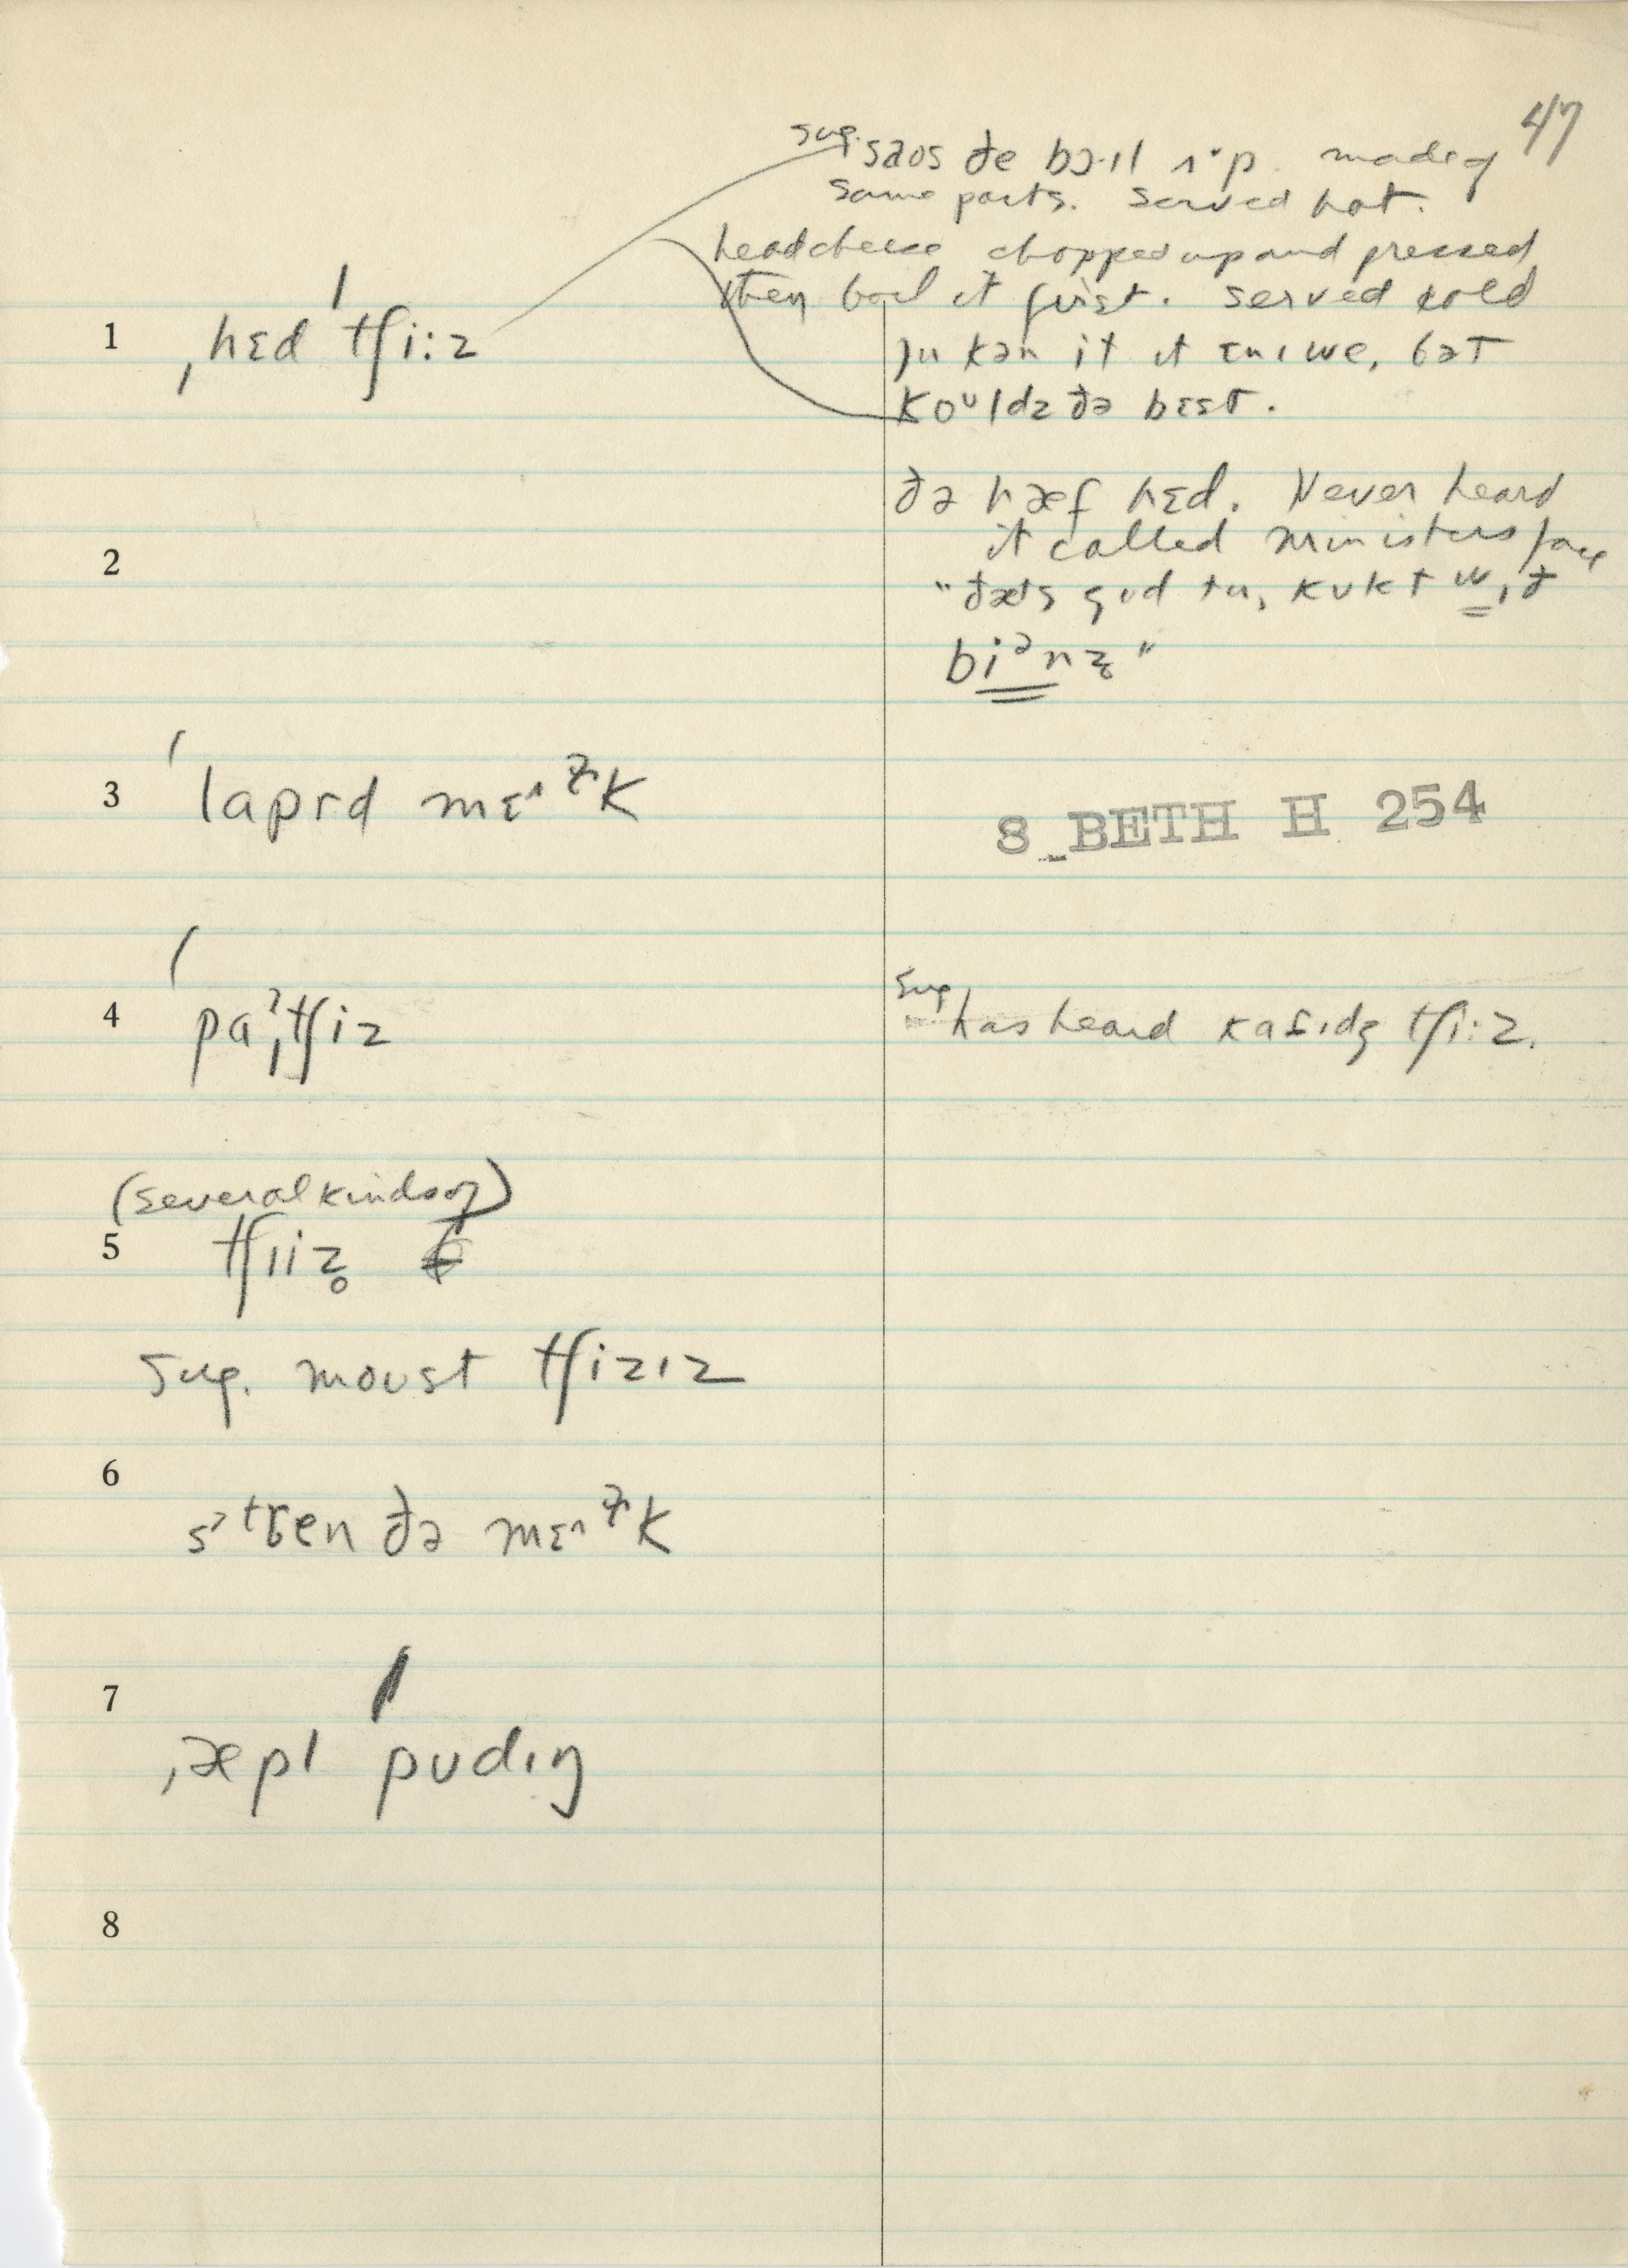 47
sug. saos ðe bɔ·ɪl ʌ·p. made of
same parts. served hot.
headcheese chopped up and pressed
then boil it first. served cold
1 ˌhɛd ˈtʃi:z
ju kən it ɪt ɛnɪwe, bət
koᵘldz ðə bɛst.
ðə hæf hɛd. Never heard
it called ministers face
2
"ðæts gʊd tu, kʊkt wɪð
biᵊnz̥"
3 ˈlapɪd mɛ^ɫk
8 BETH H 254
4 ˈpaˀˌtʃiz
sug has heard kafɪdʒ tʃi:z.
(several kinds of)
5 tʃɪiz̥
sug. moust tʃizɪz
6
s'tren ðə mɛ^ɫk
7
ˌæpl ˈpudɪŋ
8